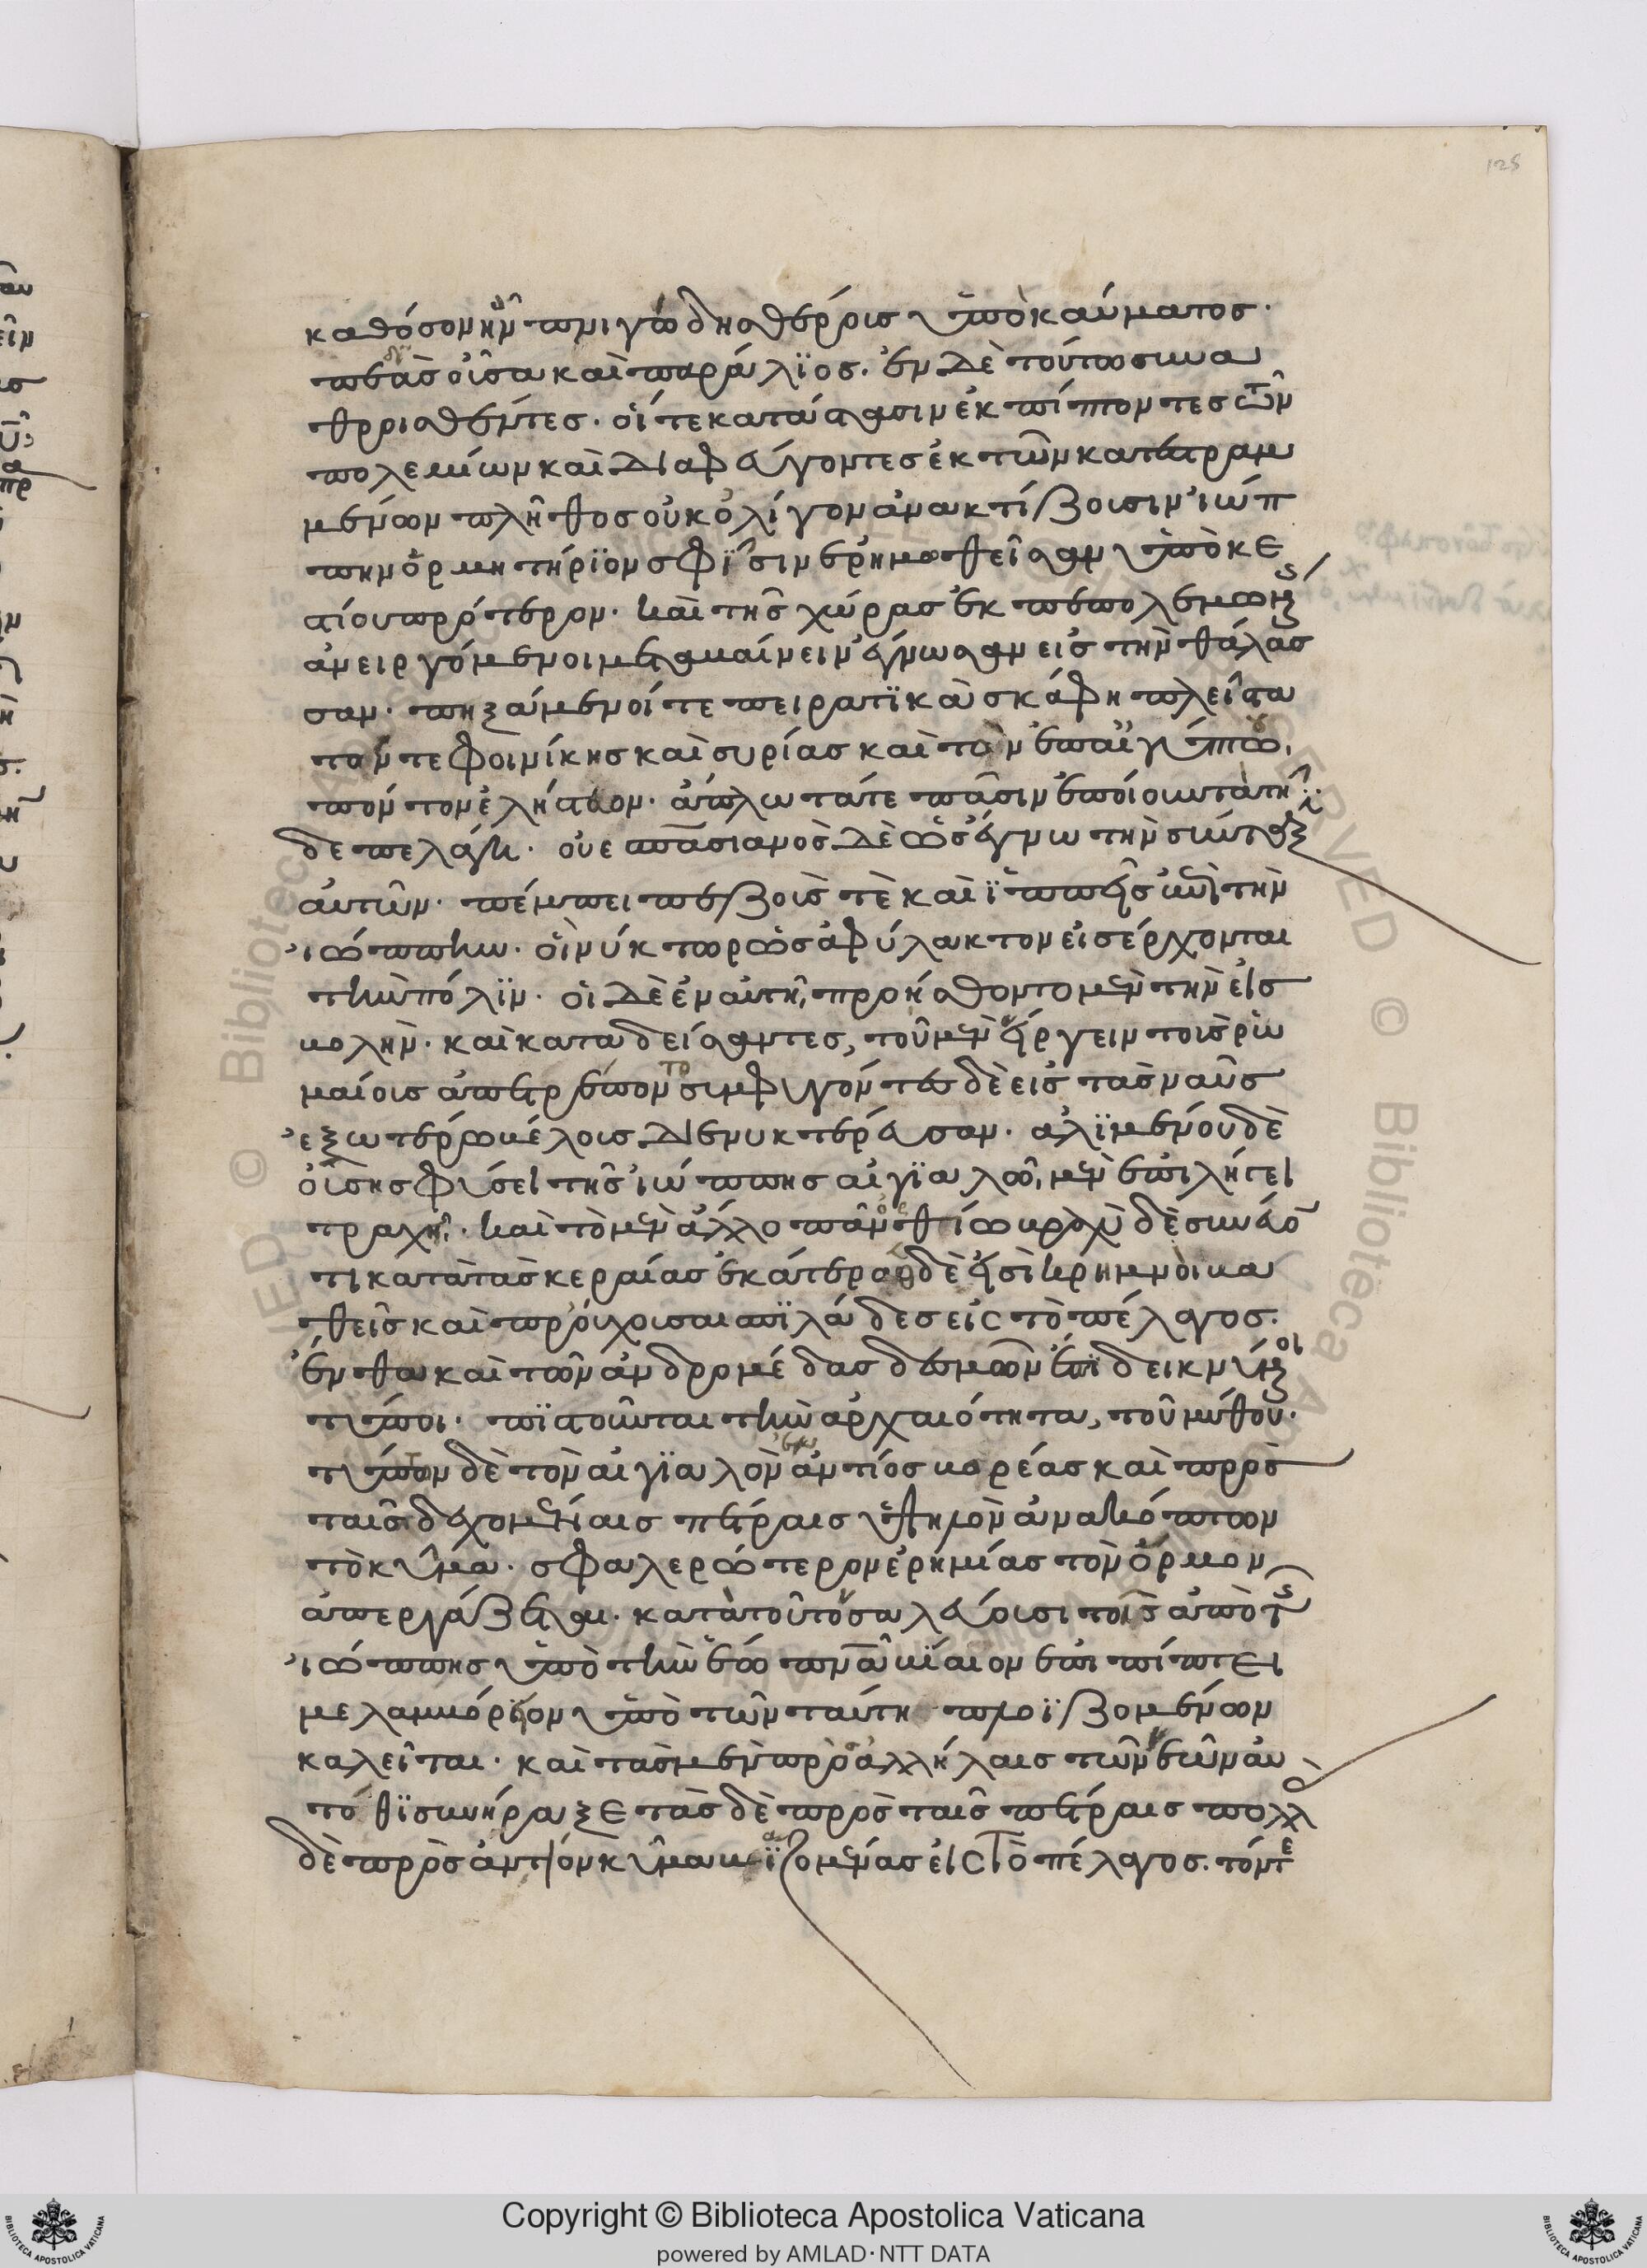 καθόσον ἦν πνιγώδησ θέροις ὑπὸ καύματοσ·
πεδιὰσ οὖσα καὶ παράλϊοσ. ἐν δὲ τούτω συνα
θροισθέντεσ· οἵ τε κατά στασιν ἐκπίπτοντεσ τῶν
πολεμίων καὶ διαφεύγοντεσ ἐκ τῶν κατεστραμ
μένων πλῆθοσ οὐκ ὀλίγον ἀνακτίζουσιν ἰώπ
πην ὁρμητήρϊον σφΐσιν ἐρημωθεῖσαν ὑπὸ κε
στίου πρότερον· καὶ τῆσ χώρασ ἐκπεπολεμωμένησ
ἀνειργόμενοι μεταβαίνειν ἔγνωσαν εἰσ τὴν θάλασ
σαν· πηξάμενοί τε πειρατϊκὰ σκάφη πλεῖστα
τόν τε φοινίκησ καὶ συρίασ καὶ τὸν ἐπ αἰγύπτου,
πόντον ἐλήστευον· ἄπλωτά τε πᾶσιν ἐποίουν τὰ τῆ
δε πελάγη· οὐεσπασιανὸσ δὲ ὡσ ἔγνω τὴν σύνταξιν
αὐτῶν· πέμπει πεζούσ τὲ καὶ ἱππεῖσ ἐπὶ τὴν
ἰώππην· οἳ νύκτωρ ὡσ ἀφύλακτον εἰσέρχονται
τὴν πόλϊν· οἱ δὲ ἐν αὐτῆ, προήσθοντο μὲν τὴν εἰσ
βολὴν· καὶ καταδείσαντεσ, τοῦ μὲν εἴργειν τοὺσ ρω
μαίουσ ἀπετρέποντο συμφυγόντεσ δὲ εἰσ τὰσ ναῦσ
ἐξωτέρω βέλουσ διενυκτέρευσαν· ἀλϊμένου δὲ
οὔσησ φύσει τῆσ ἰώππησ αἰγϊαλῶ, μὲν ἐπιλήγει
τραχεῖ· καὶ τὸ μὲν ἄλλο πᾶν ὀρθίω βραχὺ δὲ συννεῦο
τι κατὰ τὰσ κεραίασ ἑκατέρωθεν δὲ εἰσὶ κρημνοὶ βα
θεῖσ καὶ προύχουσαι σπϊλάδεσ εἰσ τὸ πέλαγοσ·
ἔνθα καὶ τῶν ἀνδρομέδασ δεσμῶν ἔτϊ δεικνύμενοι
τύποι· πϊστοῦνται τὴν ἀρχαιότητα, τοῦ μύθου·
τύπτων δὲ τὸν αἰγϊαλὸν ἀντίοσ βορέασ καὶ πρὸσ
ταῖσ δεχομέναισ πέτραισ ὑψηλὸν ἀνακόπτων
τὸ κῦμα· σφαλερώτερον ἐρημίασ τὸν ὅρμον
ἀπεργάζεται· κατὰ τοῦτο σαλεύουσι τοῖσ ἀπὸ τῆσ
ἰώππησ ὑπὸ τὴν ἕω πνεῦμα βίαιον ἐπιπίπτει
μελαμβόρϊον ὑπὸ τῶν ταύτη πλοϊζομένων
καλεῖται· καὶ τὰσ μὲν πρὸσ ἀλλήλαισ τῶν νεῶν αὐ
τόθϊ συνήραξε τὰσ δὲ πρὸσ ταῖσ πέτραισ πολλὰσ
δὲ πρὸσ ἀντίον κῦμα βϊαζομένασ εἰσ τὸ πέλαγοσ. τόν τε